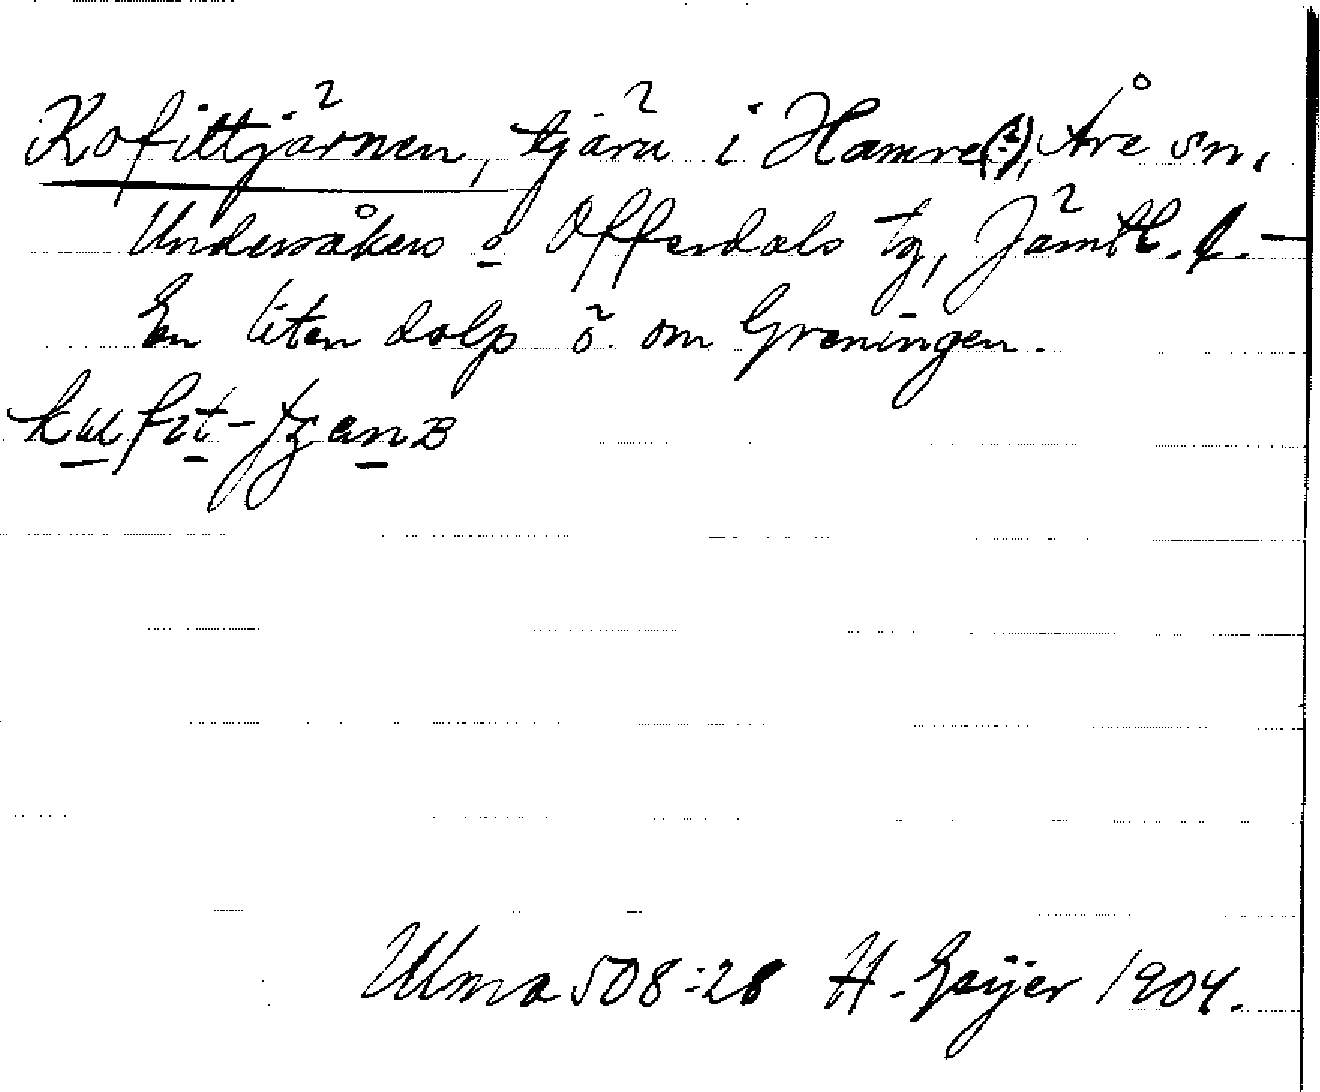 Kofittjärnen, tjärn i Hamre(?), Åre sn,
Undersåkers o Offerdals tg, Jämtl. l. –
En liten dolp ö. om Greningen.
Ulma 508:28 H. Geijer 1904.